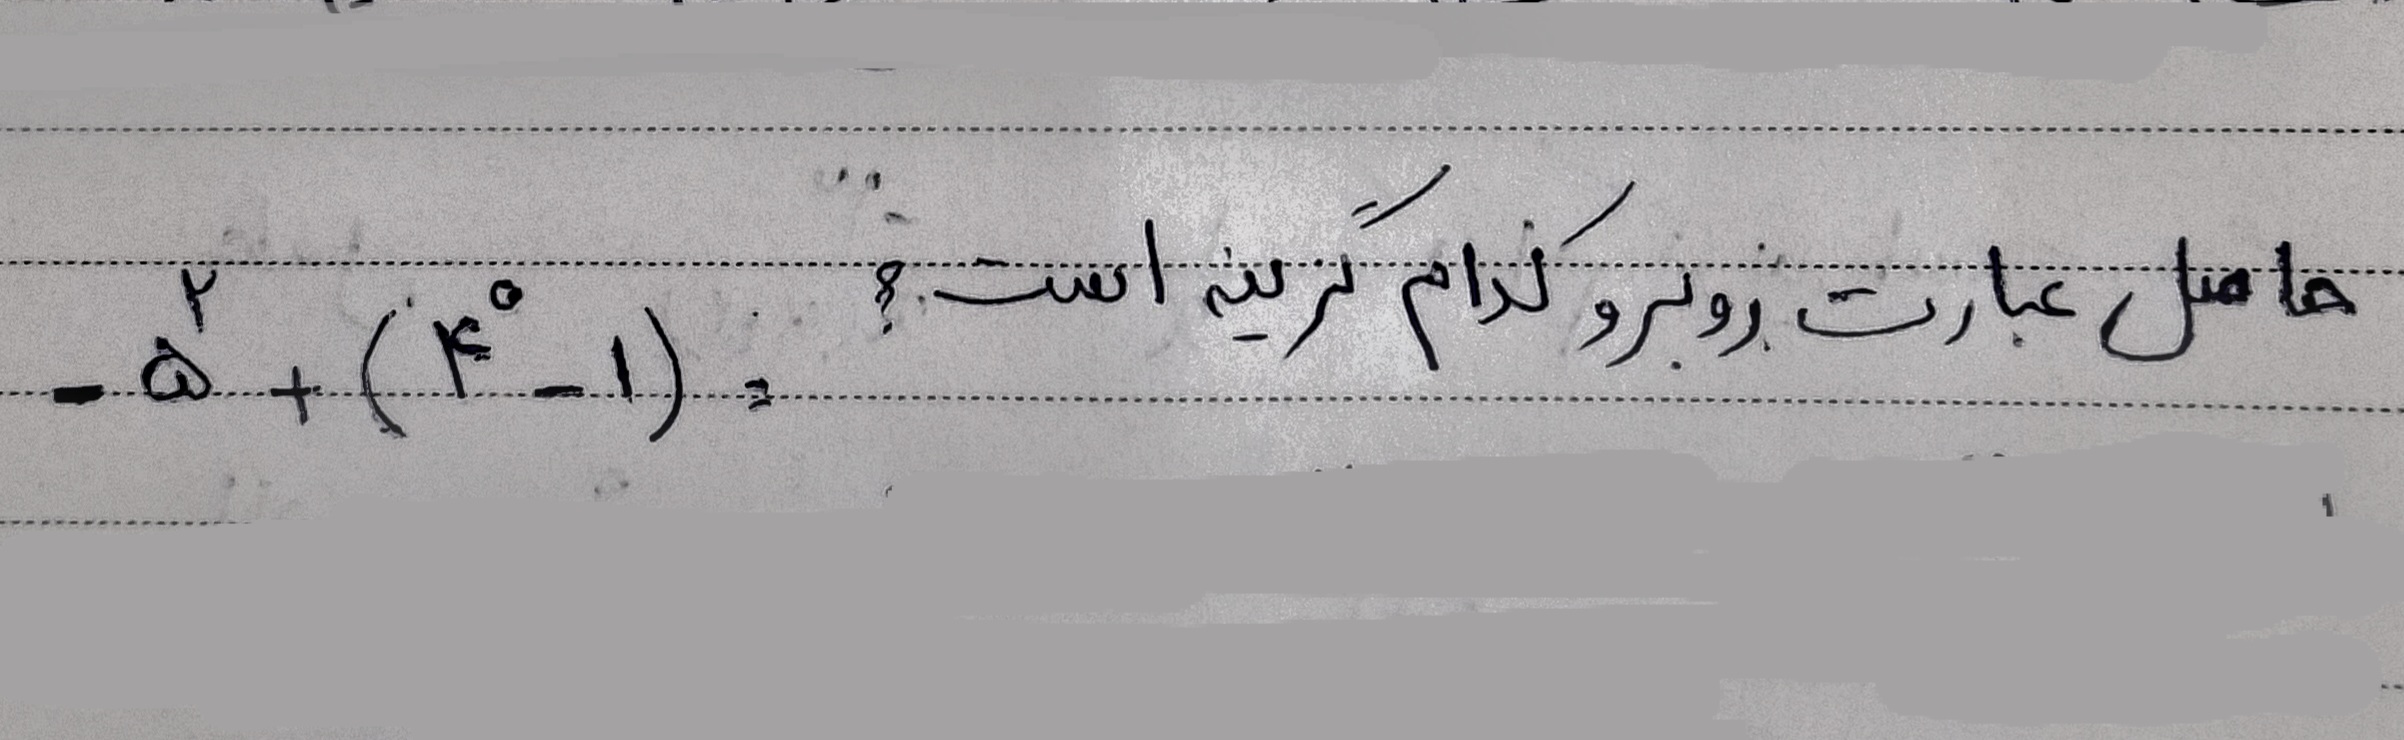 حاصل عبارت روبرو کدام گزینه است؟
- ۵^۲ + (۴^۰ - ۱) =